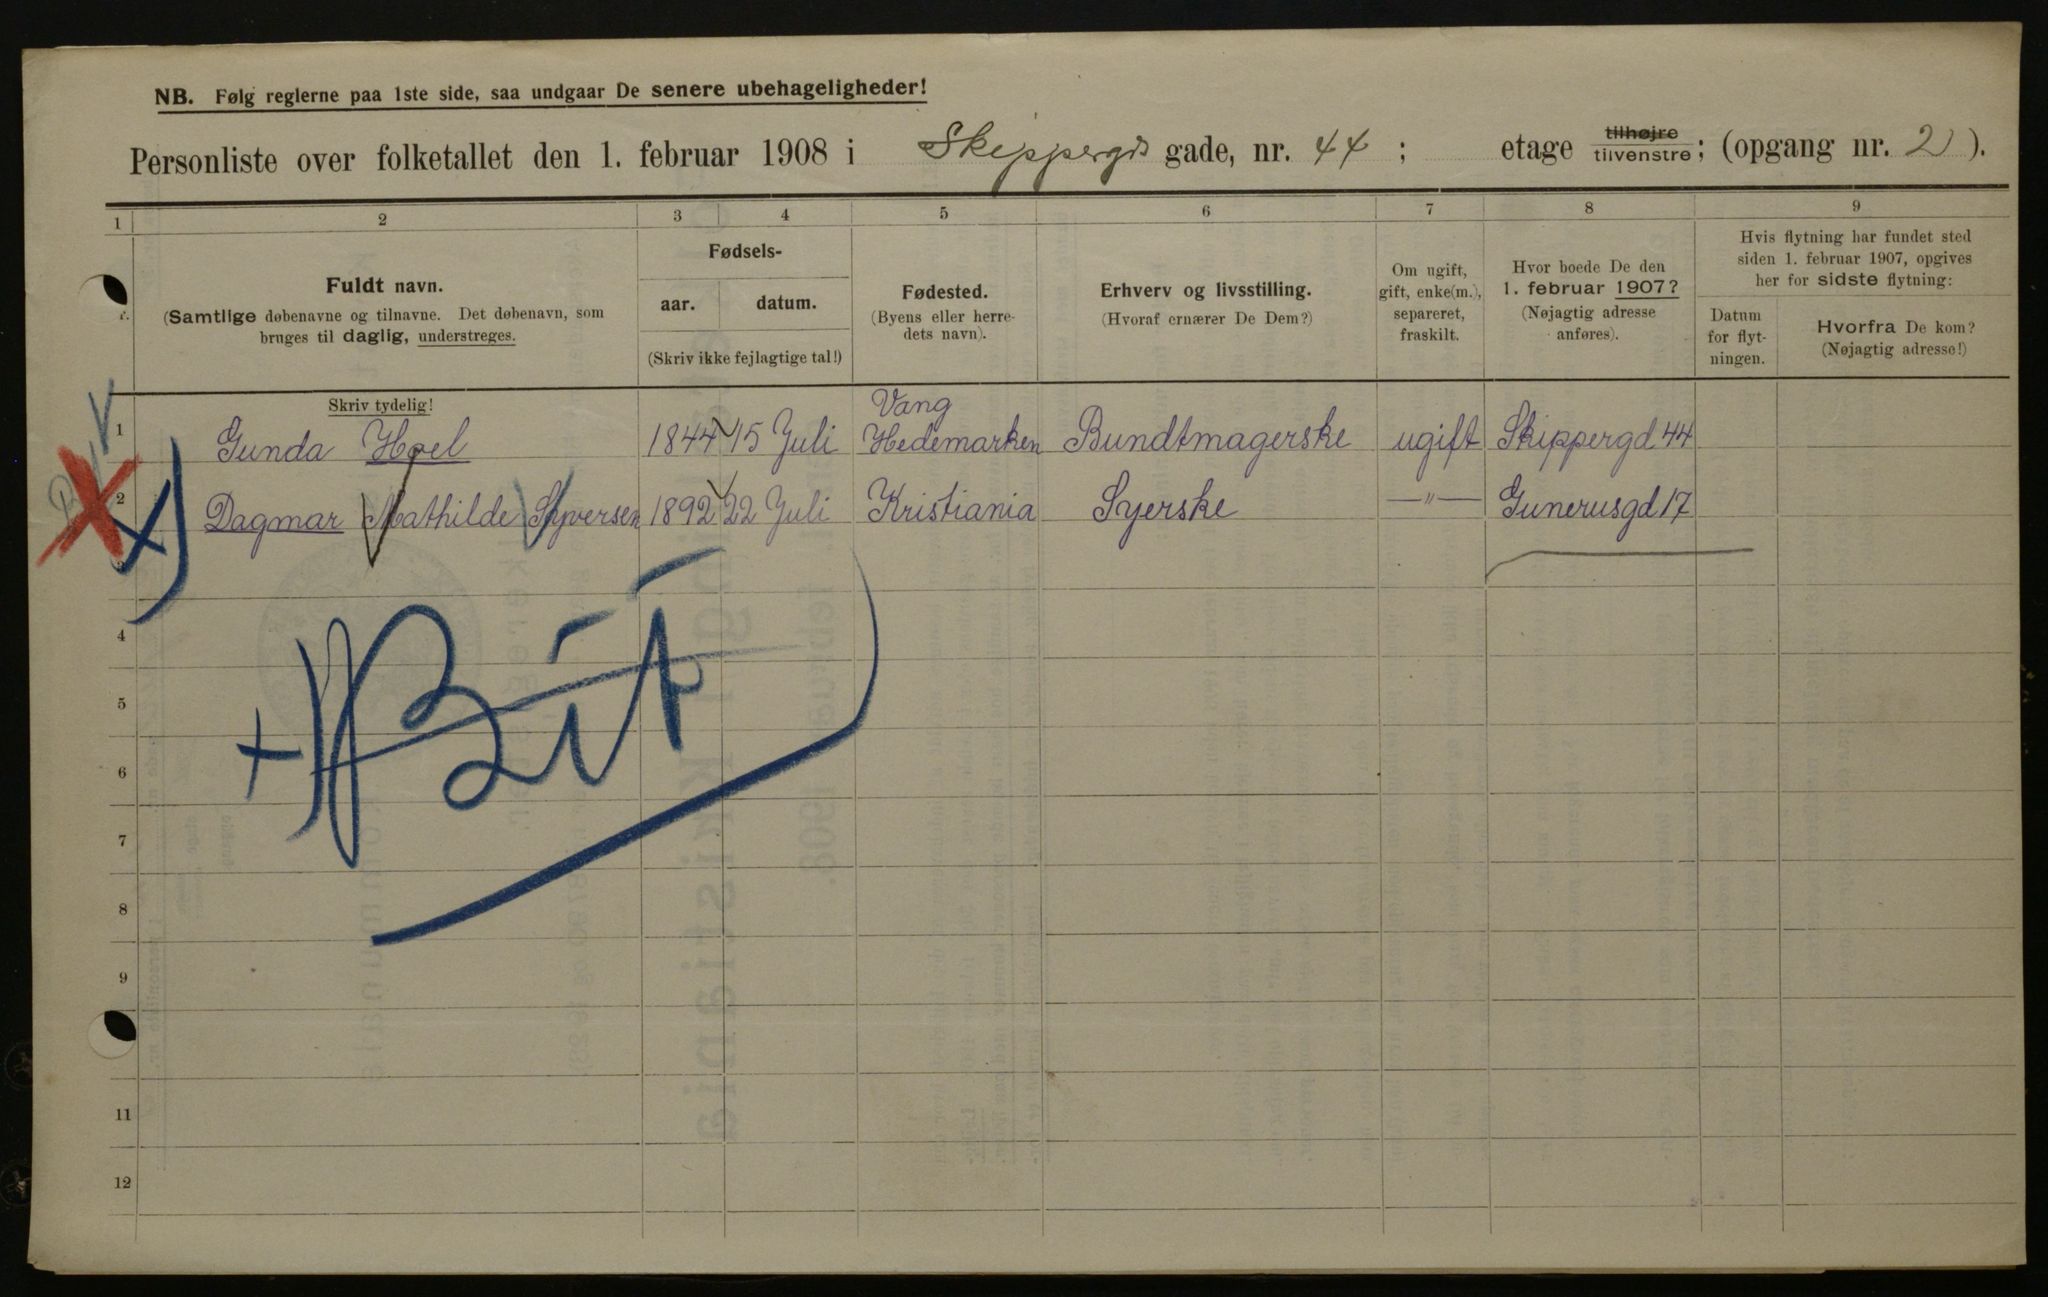 NB. Følg reglerne paa 1ste side, saa undgaar De senere ubehageligheder!
Personliste over folketallet den 1. februar 1908 i Skippergds gade, nr. 44; etage tilhøjre tilvenstre; (opgang nr. 2).
1 2 3 4 5 6 7 8 9
Fuldt navn.
(Samtlige døbenavne og tilnavne. Det døbenavn, som
bruges til daglig, understreges.
Fødsels-
aar. datum.
(Skriv ikke fejlagtige tal!)
Fødested.
(Byens eller herre-
dets navn).
Erhverv og livsstilling.
(Hvoraf ernærer De Dem?)
Om ugift,
gift, enke(m.),
separeret,
fraskilt.
Hvor boede De den
1. februar 1907?
(Nøjagtig adresse
anføres).
Hvis flytning har fundet sted
siden 1. februar 1907, opgives
her for sidste flytning:
Datum
for flyt-
ningen.
Hvorfra De kom?
(Nøjagtig adresse!)
Skriv tydelig!
1 Gunda Hoel 1844 15 Juli Vang Hedemarken Bundtmagerske ugift Skippergd 44
2 Dagmar Mathilde Syversen 1892 22 Juli Kristiania Syerske —"— Gunerusgd 17
3
4
5
6
7
8
9
11
12